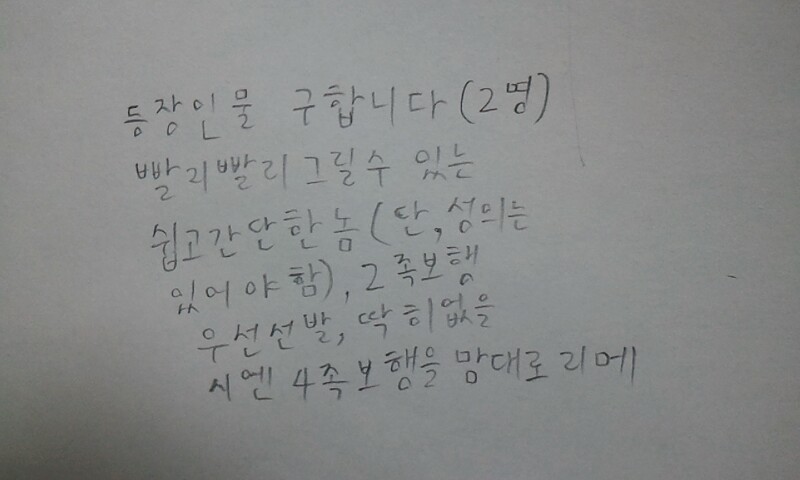 등장인물 구합니다(2명)
빨리빨리그릴수 있는
쉽고간단한놈(단,성의는
있어야함), 2족보행
우선선발, 딱히없을
시엔 4족보행을 맘대로리메